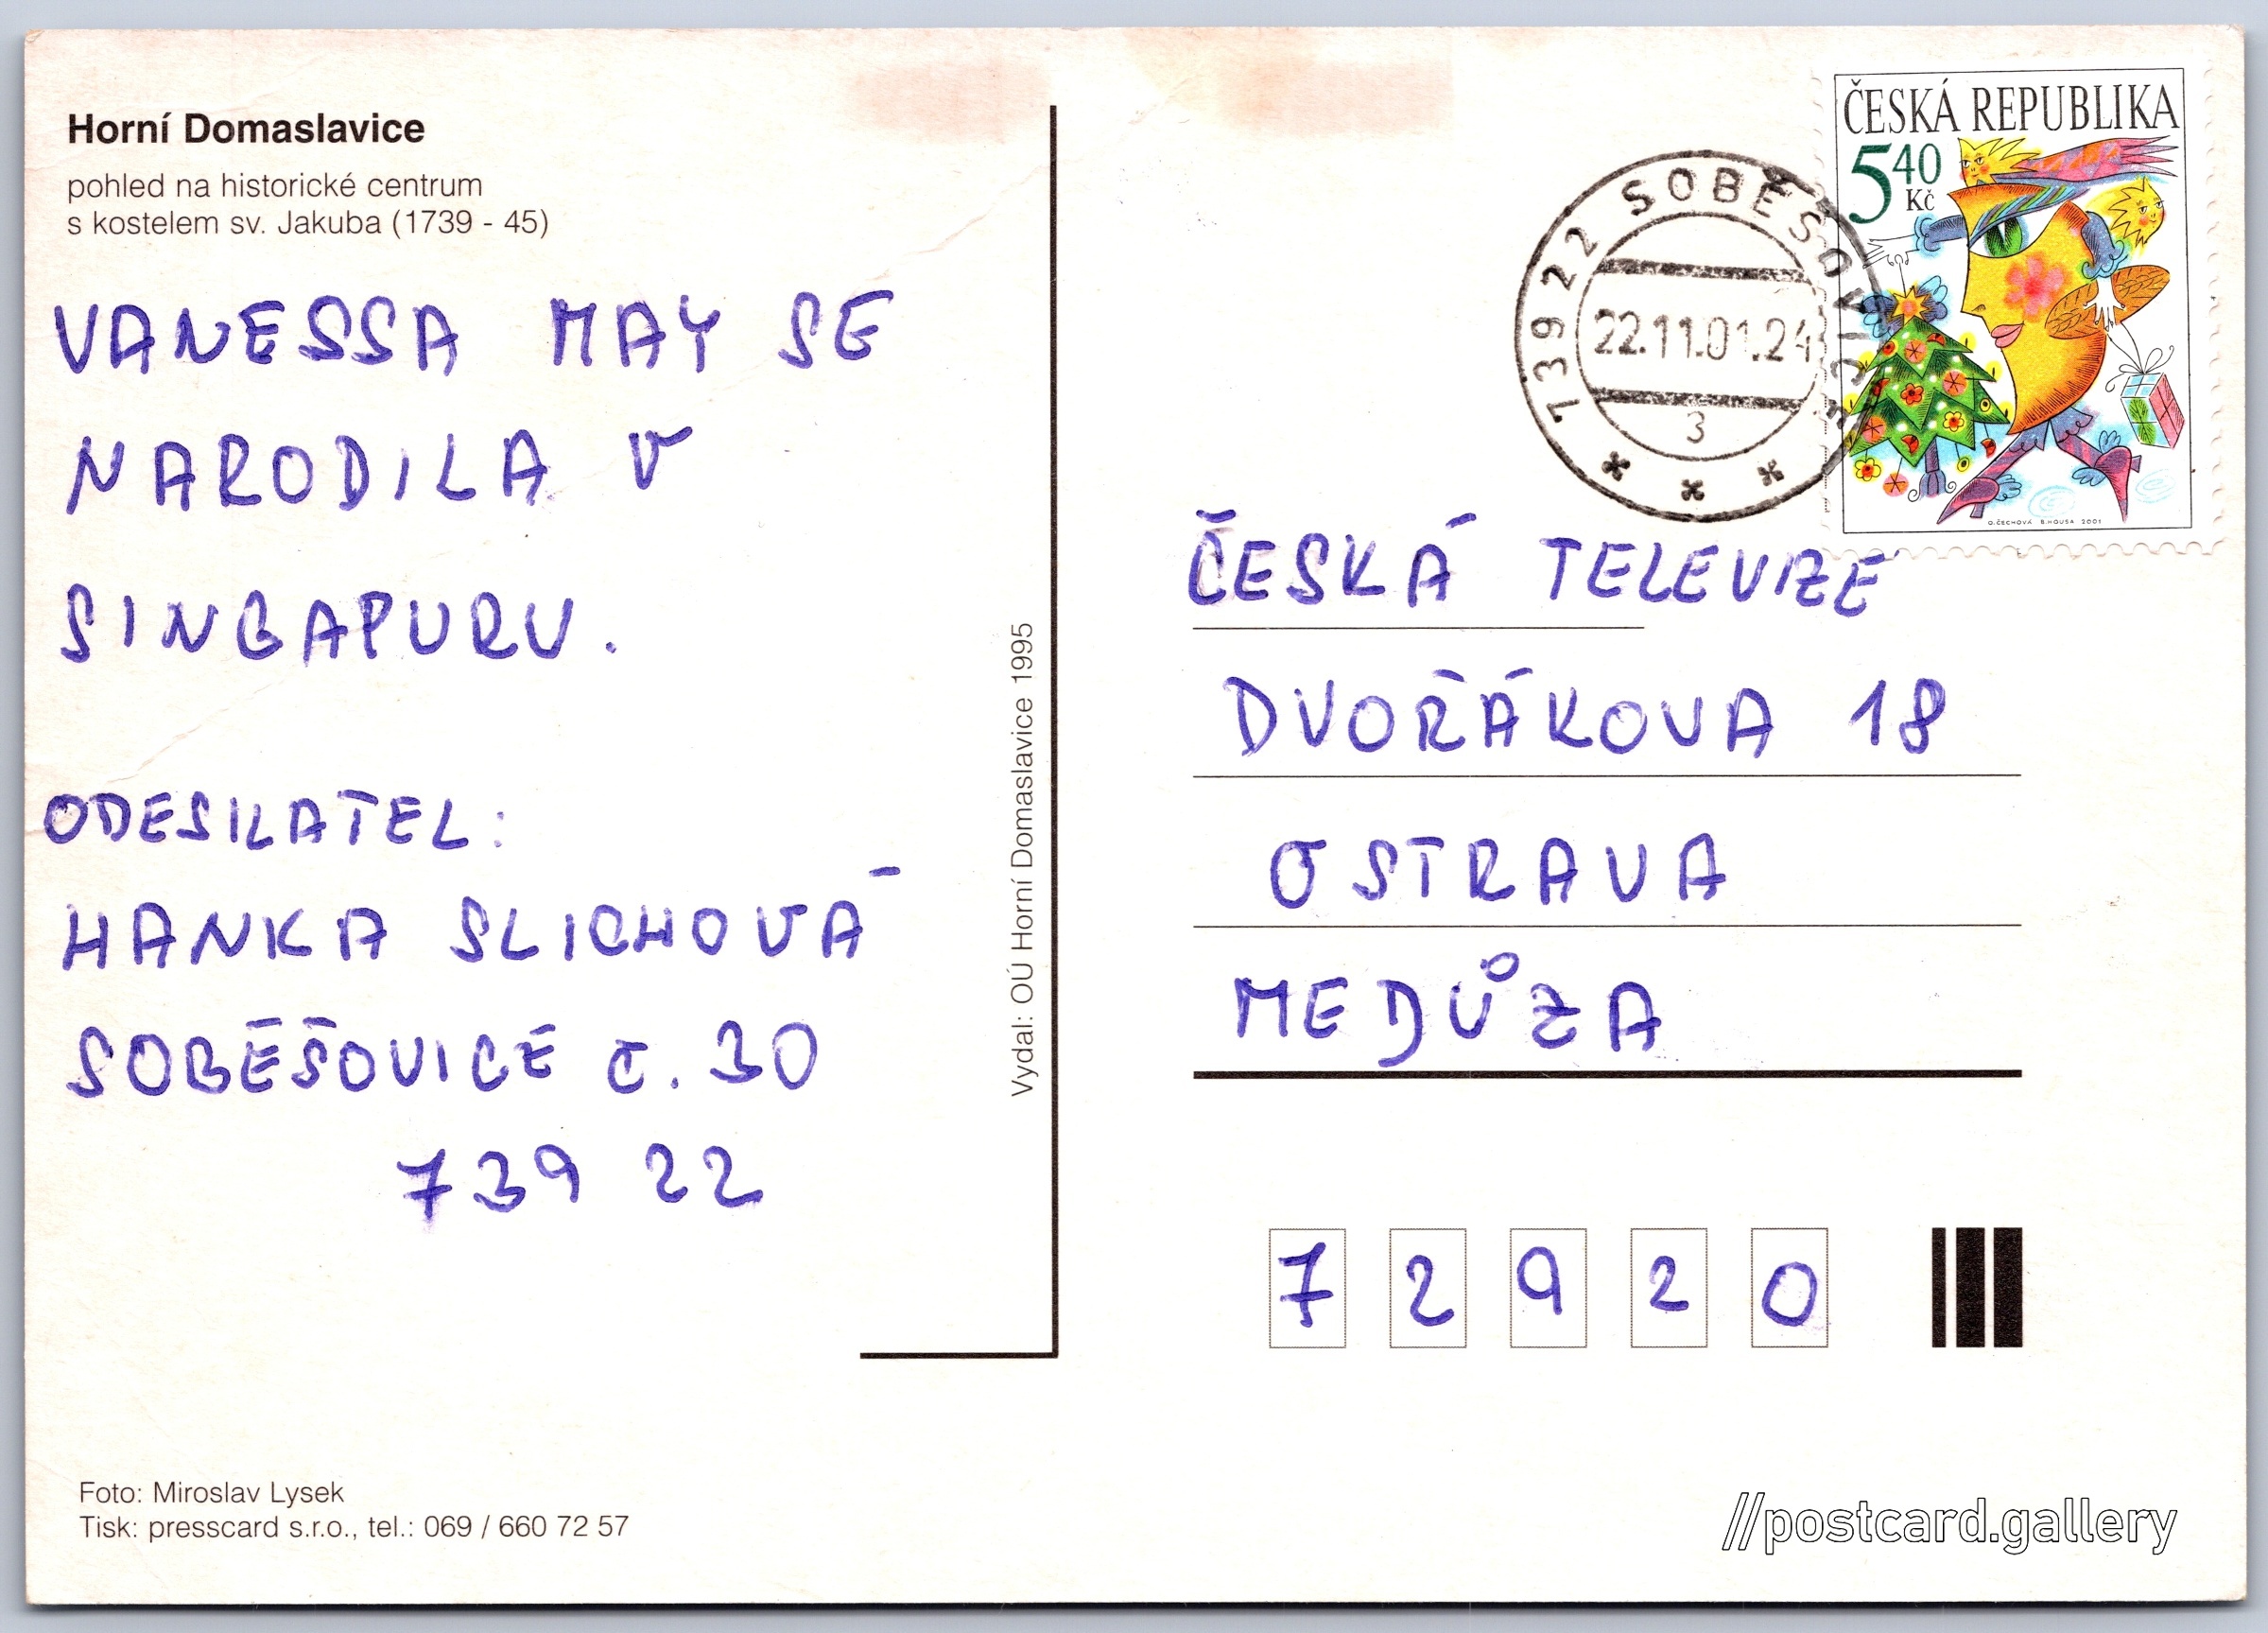 Horní Domaslavice
pohled na historické centrum
s kostelem sv. Jakuba (1739 - 45)
VANESSA MAY SE
NARODILA V
SINGAPURU.
ODESILATEL:
HANKA SLICHOVÁ
SOBĚŠOVICE č. 30
739 22
Foto: Miroslav Lysek
Tisk: presscard s.r.o., tel.: 069 / 660 72 57
Vydal: OÚ Horní Domaslavice 1995
ČESKÁ REPUBLIKA
5 40
Kč
O. ČECHOVÁ B. HOUSA 2001
739 22 SOBĚŠOVICE
22.11.01.24
3
ČESKÁ TELEVIZE
DVOŘÁKOVA 18
OSTRAVA
MEDŮZA
7 2 9 2 0
//postcard.gallery